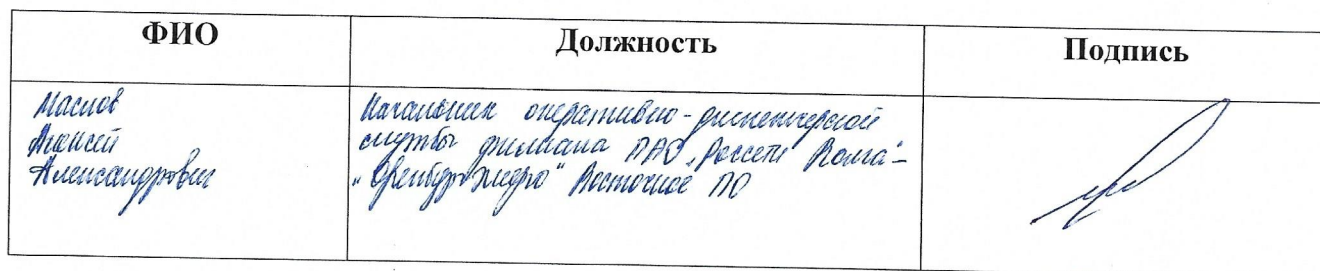 ФИО Должность Подпись
Маслов
Алексей
Александрович
Начальник оперативно-диспетчерской
службы филиала ПАО „Россети Волга"-
„Оренбургэнерго" Восточное ПО